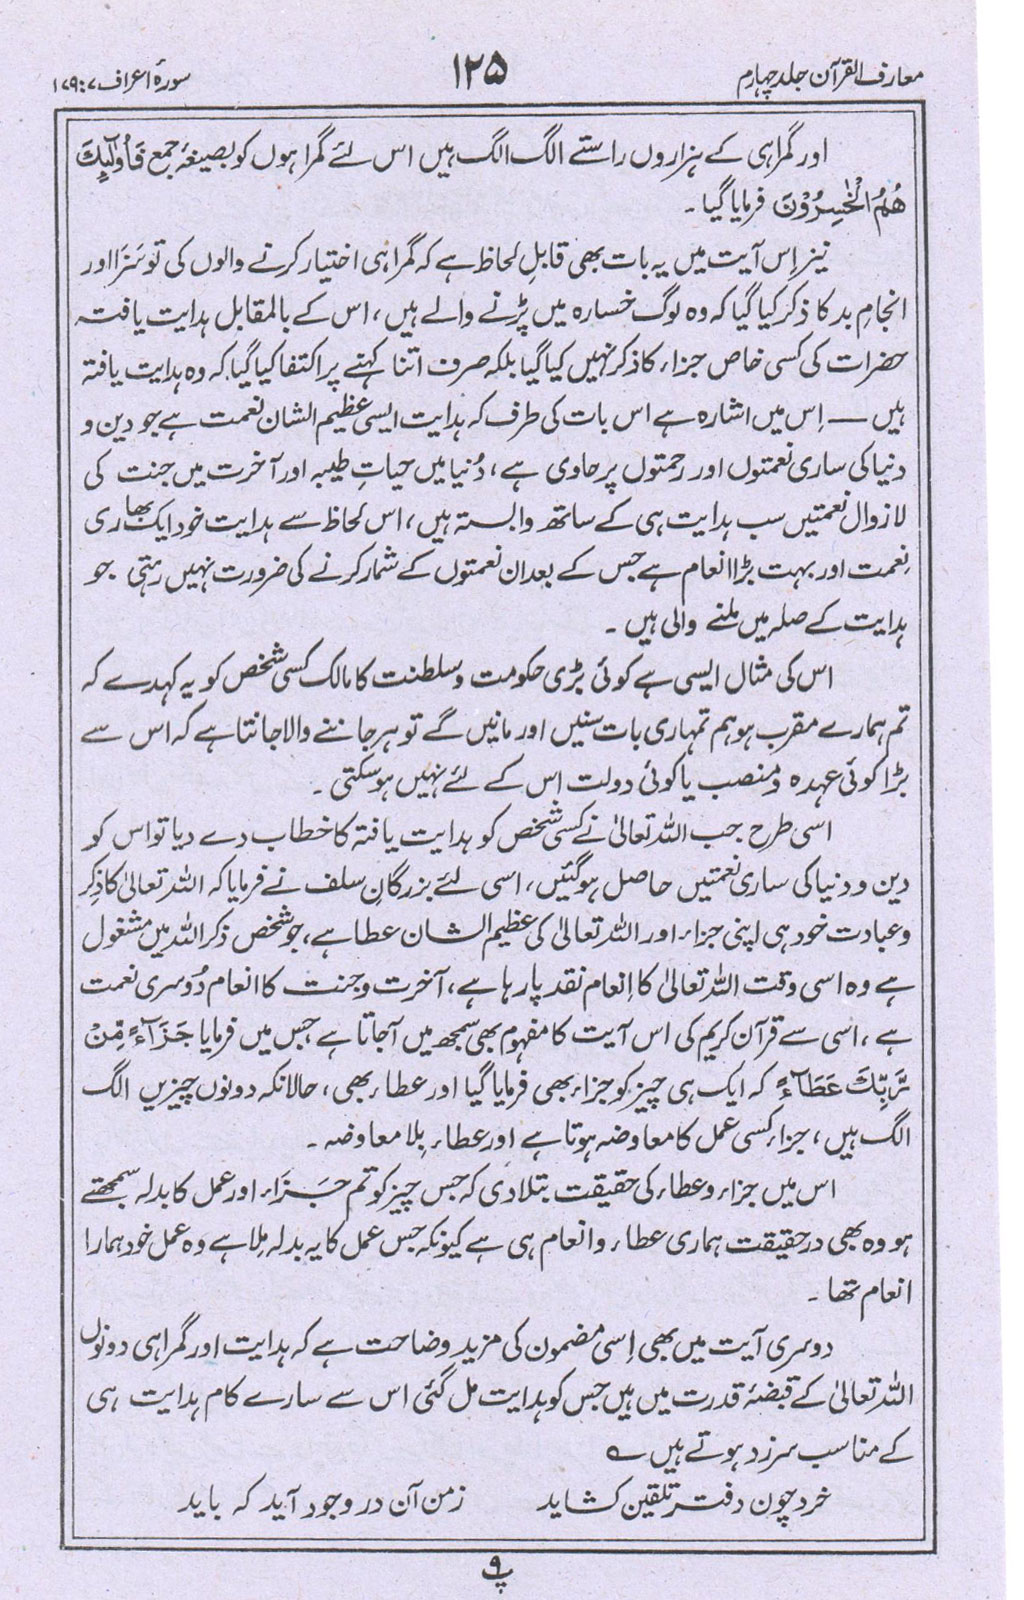 معارف القرآن جلد چہارم
۱۲۵
سورۂ اعراف ۷ : ۱۷۹
اور گمراہی کے ہزاروں راستے الگ الگ ہیں اس لئے گمراہوں کو بصیغۂ جمع فَاُولٰٓئِكَ
هُمُ الْخٰسِرُوْنَ فرمایا گیا ۔
نیز اِس آیت میں یہ بات بھی قابلِ لحاظ ہے کہ گمراہی اختیار کرنے والوں کی تو سَزَا اور
انجامِ بد کا ذکر کیا گیا کہ وہ لوگ خسارہ میں پڑنے والے ہیں ، اس کے بالمقابل ہدایت یافتہ
حضرات کی کسی خاص جزاء کا ذکر نہیں کیا گیا بلکہ صرف اتنا کہنے پر اکتفا کیا گیا کہ وہ ہدایت یافتہ
ہیں — اِس میں اشارہ ہے اس بات کی طرف کہ ہدایت ایسی عظیم الشان نعمت ہے جو دین و
دنیا کی ساری نعمتوں اور رحمتوں پر حاوی ہے ، دُنیا میں حیاتِ طیبہ اور آخرت میں جنت کی
لازوال نعمتیں سب ہدایت ہی کے ساتھ وابستہ ہیں ، اس لحاظ سے ہدایت خود ایک بھاری
نِعمت اور بہت بڑا انعام ہے جس کے بعد ان نعمتوں کے شمار کرنے کی ضرورت نہیں رہتی جو
ہدایت کے صلہ میں ملنے والی ہیں ۔
اس کی مثال ایسی ہے کوئی بڑی حکومت و سلطنت کا مالک کسی شخص کو یہ کہدے کہ
تم ہمارے مقرب ہو ہم تمہاری بات سنیں اور مانیں گے تو ہر جاننے والا جانتا ہے کہ اس سے
بڑا کوئی عہدہ و منصب یا کوئی دولت اس کے لئے نہیں ہو سکتی ۔
اسی طرح جب اللہ تعالیٰ نے کسی شخص کو ہدایت یافتہ کا خطاب دے دیا تو اس کو
دین و دنیا کی ساری نعمتیں حاصل ہو گئیں ، اسی لئے بزرگانِ سلف نے فرمایا کہ اللہ تعالیٰ کا ذکر
و عبادت خود ہی اپنی جزاء اور اللہ تعالیٰ کی عظیم الشان عطا ہے ، جو شخص ذکر اللہ میں مشغول
ہے وہ اسی وقت اللہ تعالیٰ کا اِنعام نقد پا رہا ہے ، آخرت و جنت کا انعام دُوسری نعمت
ہے ، اسی سے قرآن کریم کی اس آیت کا مفہوم بھی سمجھ میں آجاتا ہے جس میں فرمایا جَزَآءً مِّنْ
رَّبِّكَ عَطَآءً کہ ایک ہی چیز کو جزاء بھی فرمایا گیا اور عطاء بھی ، حالانکہ دونوں چیزیں الگ
الگ ہیں ، جزاء کسی عمل کا معاوضہ ہوتا ہے اور عطاء بِلا معاوضہ ۔
اس میں جزاء و عطاء کی حقیقت بتلا دی کہ جس چیز کو تم جَزَاء اور عمل کا بدلہ سمجھتے
ہو وہ بھی درحقیقت ہماری عطاء و انعام ہی ہے کیونکہ جس عمل کا یہ بدلہ مِلا ہے وہ عمل خود ہمارا
انعام تھا ۔
دوسری آیت میں بھی اِسی مضمون کی مزید وضاحت ہے کہ ہدایت اور گمراہی دونوں
اللہ تعالیٰ کے قبضۂ قدرت میں ہیں جس کو ہدایت مل گئی اس سے سارے کام ہدایت ہی
کے مناسب سرزد ہوتے ہیں ؎
خرد چون دفتر تلقین کشاید زمن آن در وجود آید کہ باید
پ ۹